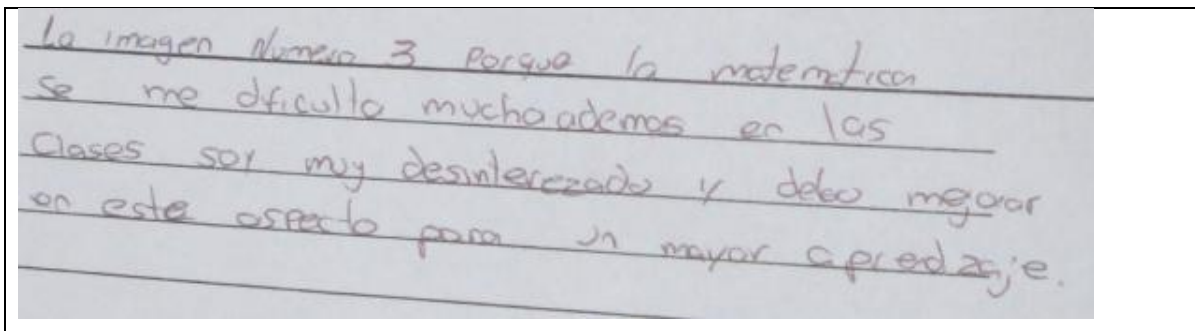 La imagen Numero 3 porque la matematica
se me dificulta mucho ademas en las
Clases soy muy desinterezado y debo mejorar
en este aspecto para un mayor apredzaje.